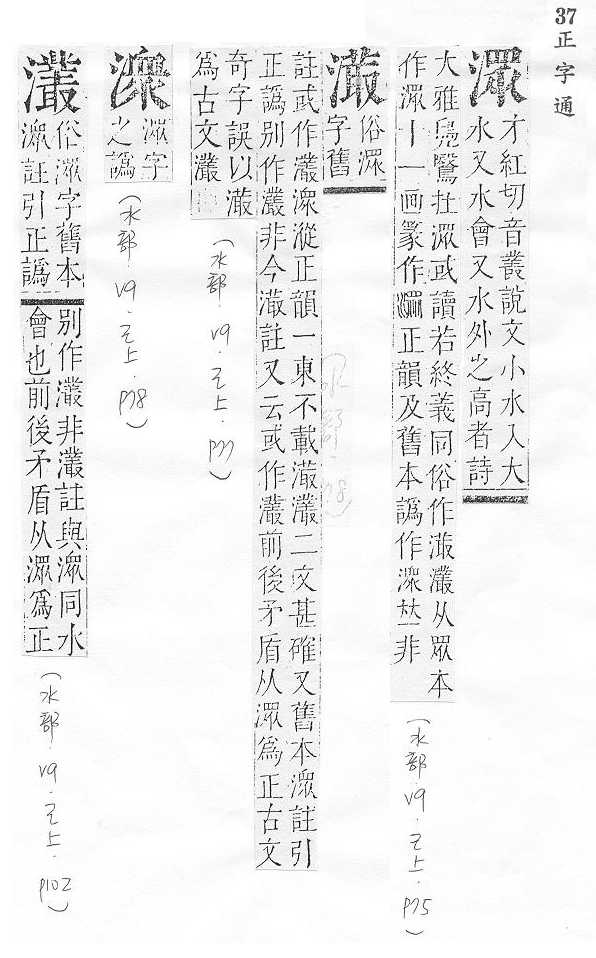 37 正字通
潨
才紅切音叢說文小水入大
水又水會又水外之高者詩
大雅鳧鷖在潨或讀若終義同俗作灇从眾本
作潨丨一画篆作正韻及舊本譌作𠀤非
（水部．V9．巳上．P75）
俗潨
字舊
註或作灇潨漎正韻一東不載灇二文甚確又舊本潨註引
正譌別作灇非今註又云或作灇前後矛盾从潨爲正古文
奇字誤以
爲古文灇
（水部．V9．巳上．P77）
潨字
之譌
（水部．V9．巳上．P78）
灇
俗潨字舊本
潨註引正譌
別作灇非灇註與潨同水
會也前後矛盾从潨爲正
（水部．V9．巳上．P102）